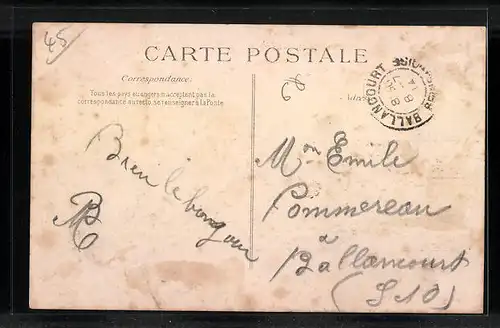 45
CARTE POSTALE
Correspondance
Tous les pays étrangers n'acceptent pas la
correspondance au recto, se renseigner à la Poste
68
BALLANCOURT
Bien le bonjour
Mon Emile
Pommereau
à
Ballancourt
(S&O)